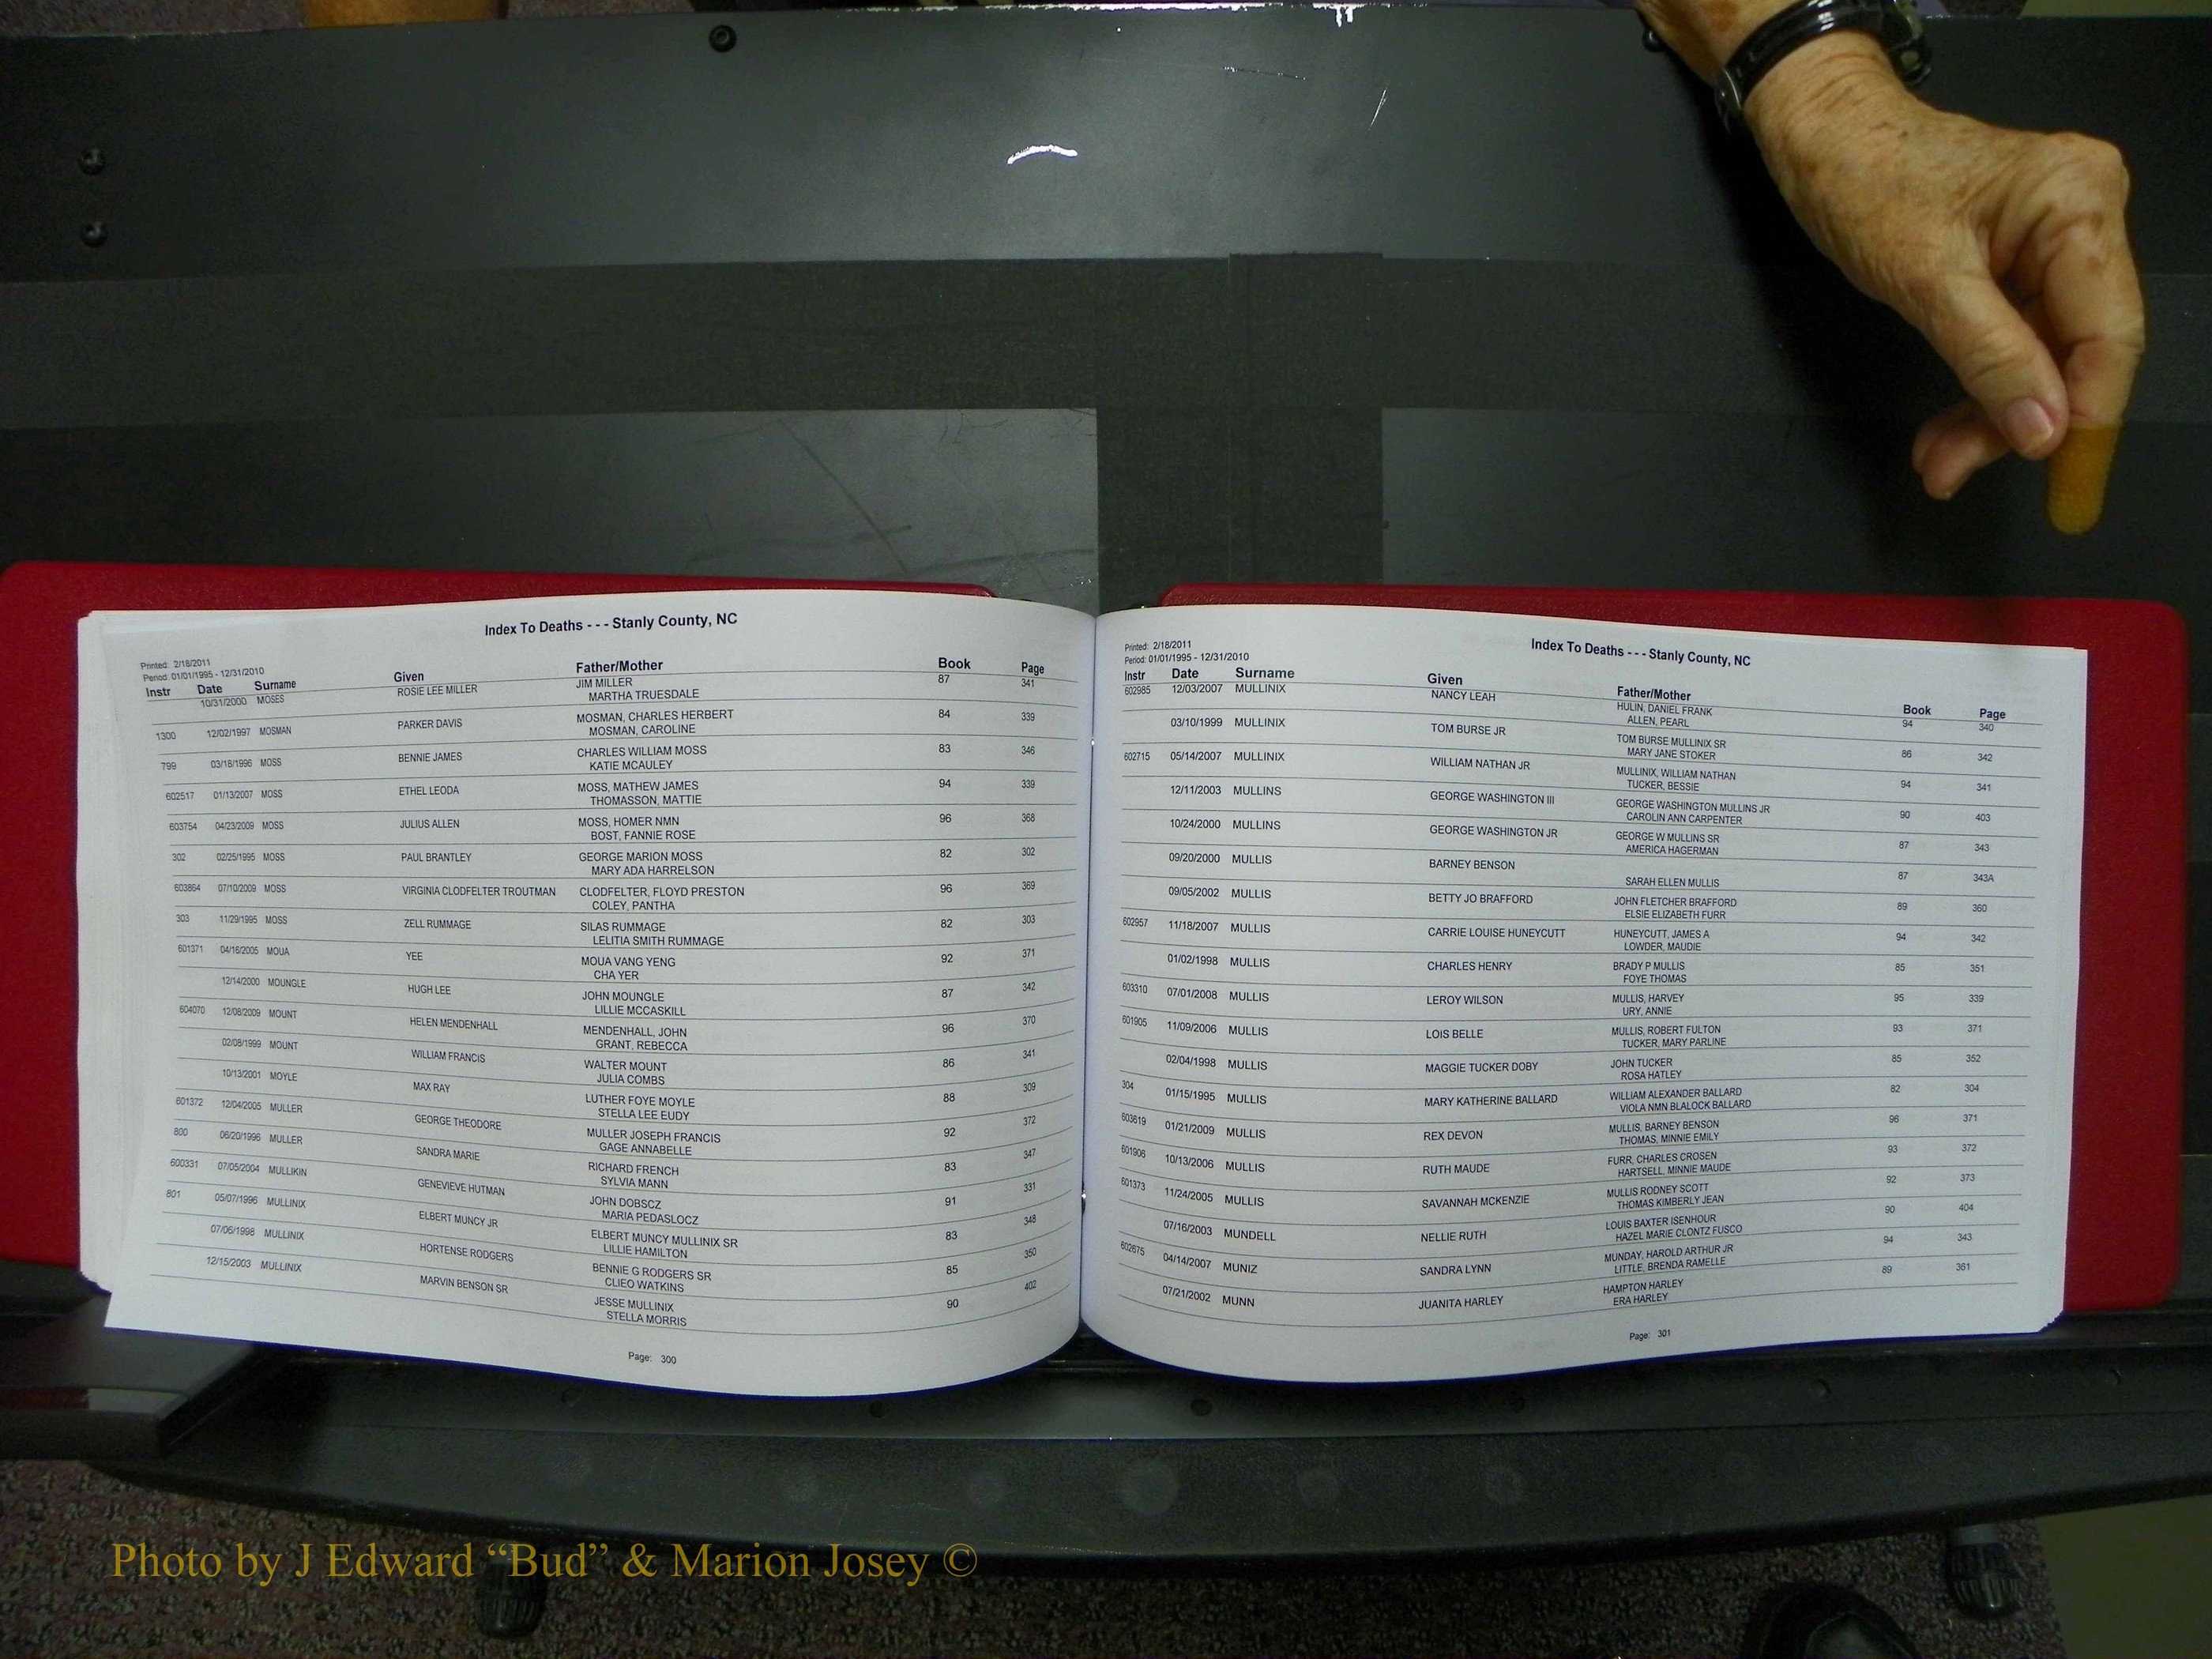 Index To Deaths - - - Stanly County, NC
Printed: 2/18/2011
Period: 01/01/1995 - 12/31/2010
Instr Date Surname Given Father/Mother Book Page
10/31/2000 MOSES ROSIE LEE MILLER JIM MILLER 87 341
MARTHA TRUESDALE
1300 12/02/1997 MOSMAN PARKER DAVIS MOSMAN, CHARLES HERBERT 84 339
MOSMAN, CAROLINE
799 03/18/1996 MOSS BENNIE JAMES CHARLES WILLIAM MOSS 83 346
KATIE MCAULEY
602517 01/13/2007 MOSS ETHEL LEODA MOSS, MATHEW JAMES 94 339
THOMASSON, MATTIE
603754 04/23/2009 MOSS JULIUS ALLEN MOSS, HOMER NMN 96 368
BOST, FANNIE ROSE
302 02/25/1995 MOSS PAUL BRANTLEY GEORGE MARION MOSS 82 302
MARY ADA HARRELSON
603864 07/10/2009 MOSS VIRGINIA CLODFELTER TROUTMAN CLODFELTER, FLOYD PRESTON 96 369
COLEY, PANTHA
303 11/29/1995 MOSS ZELL RUMMAGE SILAS RUMMAGE 82 303
LELITIA SMITH RUMMAGE
601371 04/16/2005 MOUA YEE MOUA VANG YENG 92 371
CHA YER
12/14/2000 MOUNGLE HUGH LEE JOHN MOUNGLE 87 342
LILLIE MCCASKILL
604070 12/08/2009 MOUNT HELEN MENDENHALL MENDENHALL, JOHN 96 370
GRANT, REBECCA
02/08/1999 MOUNT WILLIAM FRANCIS WALTER MOUNT 86 341
JULIA COMBS
10/13/2001 MOYLE MAX RAY LUTHER FOYE MOYLE 88 309
STELLA LEE EUDY
601372 12/04/2005 MULLER GEORGE THEODORE MULLER JOSEPH FRANCIS 92 372
GAGE ANNABELLE
800 06/20/1996 MULLER SANDRA MARIE RICHARD FRENCH 83 347
SYLVIA MANN
600331 07/05/2004 MULLIKIN GENEVIEVE HUTMAN JOHN DOBSCZ 91 331
MARIA PEDASLOCZ
801 05/07/1996 MULLINIX ELBERT MUNCY JR ELBERT MUNCY MULLINIX SR 83 348
LILLIE HAMILTON
07/06/1998 MULLINIX HORTENSE RODGERS BENNIE G RODGERS SR 85 350
CLIEO WATKINS
12/15/2003 MULLINIX MARVIN BENSON SR JESSE MULLINIX 90 402
STELLA MORRIS
Page: 300
Index To Deaths - - - Stanly County, NC
Printed: 2/18/2011
Period: 01/01/1995 - 12/31/2010
Instr Date Surname Given Father/Mother Book Page
602985 12/03/2007 MULLINIX NANCY LEAH HULIN, DANIEL FRANK 94 340
ALLEN, PEARL
03/10/1999 MULLINIX TOM BURSE JR TOM BURSE MULLINIX SR 86 342
MARY JANE STOKER
602715 05/14/2007 MULLINIX WILLIAM NATHAN JR MULLINIX, WILLIAM NATHAN 94 341
TUCKER, BESSIE
12/11/2003 MULLINS GEORGE WASHINGTON III GEORGE WASHINGTON MULLINS JR 90 403
CAROLIN ANN CARPENTER
10/24/2000 MULLINS GEORGE WASHINGTON JR GEORGE W MULLINS SR 87 343
AMERICA HAGERMAN
09/20/2000 MULLIS BARNEY BENSON 87 343A
SARAH ELLEN MULLIS
09/05/2002 MULLIS BETTY JO BRAFFORD JOHN FLETCHER BRAFFORD 89 360
ELSIE ELIZABETH FURR
602957 11/18/2007 MULLIS CARRIE LOUISE HUNEYCUTT HUNEYCUTT, JAMES A 94 342
LOWDER, MAUDIE
01/02/1998 MULLIS CHARLES HENRY BRADY P MULLIS 85 351
FOYE THOMAS
603310 07/01/2008 MULLIS LEROY WILSON MULLIS, HARVEY 95 339
URY, ANNIE
601905 11/09/2006 MULLIS LOIS BELLE MULLIS, ROBERT FULTON 93 371
TUCKER, MARY PARLINE
02/04/1998 MULLIS MAGGIE TUCKER DOBY JOHN TUCKER 85 352
ROSA HATLEY
304 01/15/1995 MULLIS MARY KATHERINE BALLARD WILLIAM ALEXANDER BALLARD 82 304
VIOLA NMN BLALOCK BALLARD
603619 01/21/2009 MULLIS REX DEVON MULLIS, BARNEY BENSON 96 371
THOMAS, MINNIE EMILY
601906 10/13/2006 MULLIS RUTH MAUDE FURR, CHARLES CROSEN 93 372
HARTSELL, MINNIE MAUDE
601373 11/24/2005 MULLIS SAVANNAH MCKENZIE MULLIS RODNEY SCOTT 92 373
THOMAS KIMBERLY JEAN
07/16/2003 MUNDELL NELLIE RUTH LOUIS BAXTER ISENHOUR 90 404
HAZEL MARIE CLONTZ FUSCO
602675 04/14/2007 MUNIZ SANDRA LYNN MUNDAY, HAROLD ARTHUR JR 94 343
LITTLE, BRENDA RAMELLE
07/21/2002 MUNN JUANITA HARLEY HAMPTON HARLEY 89 361
ERA HARLEY
Page: 301
Photo by J Edward “Bud” & Marion Josey ©